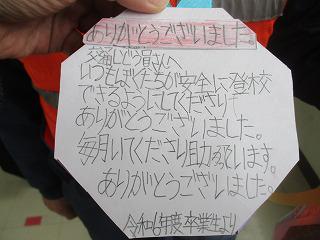 ありがとうございました。
交通しどう員さんへ
いつもぼくたちが安全に登校
できるようにしてくださり
ありがとうございました。
毎月いてくださり助かります。
ありがとうございました。
令和6年度卒業生より